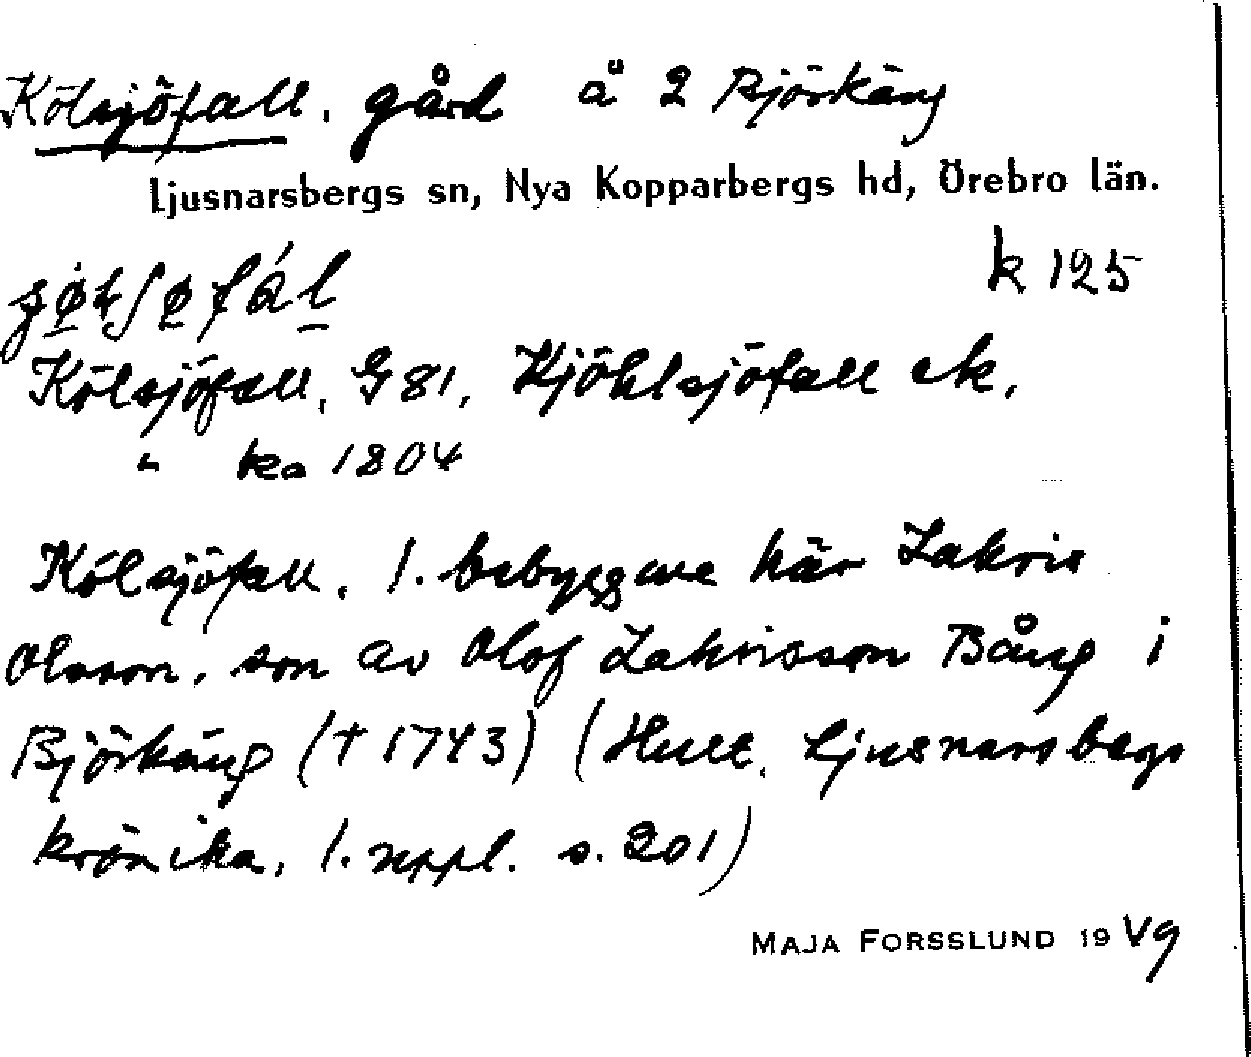 Kölsjöfall, gård å 2 Björkäng
Ljusnarsbergs sn, Nya Kopparbergs hd, Örebro län.
k 125
Kölsjöfall, G 81, Kjöhlsjöfall ek,
" ka 1804
Kölsjöfall, 1. bebyggare här Zakris
Olsson, son av Olof Zakrisson Bång i
Björkäng († 1743) (Hult, Ljusnarsbergs
krönika, 1. uppl. s. 201)
MAJA FORSSLUND 19 49